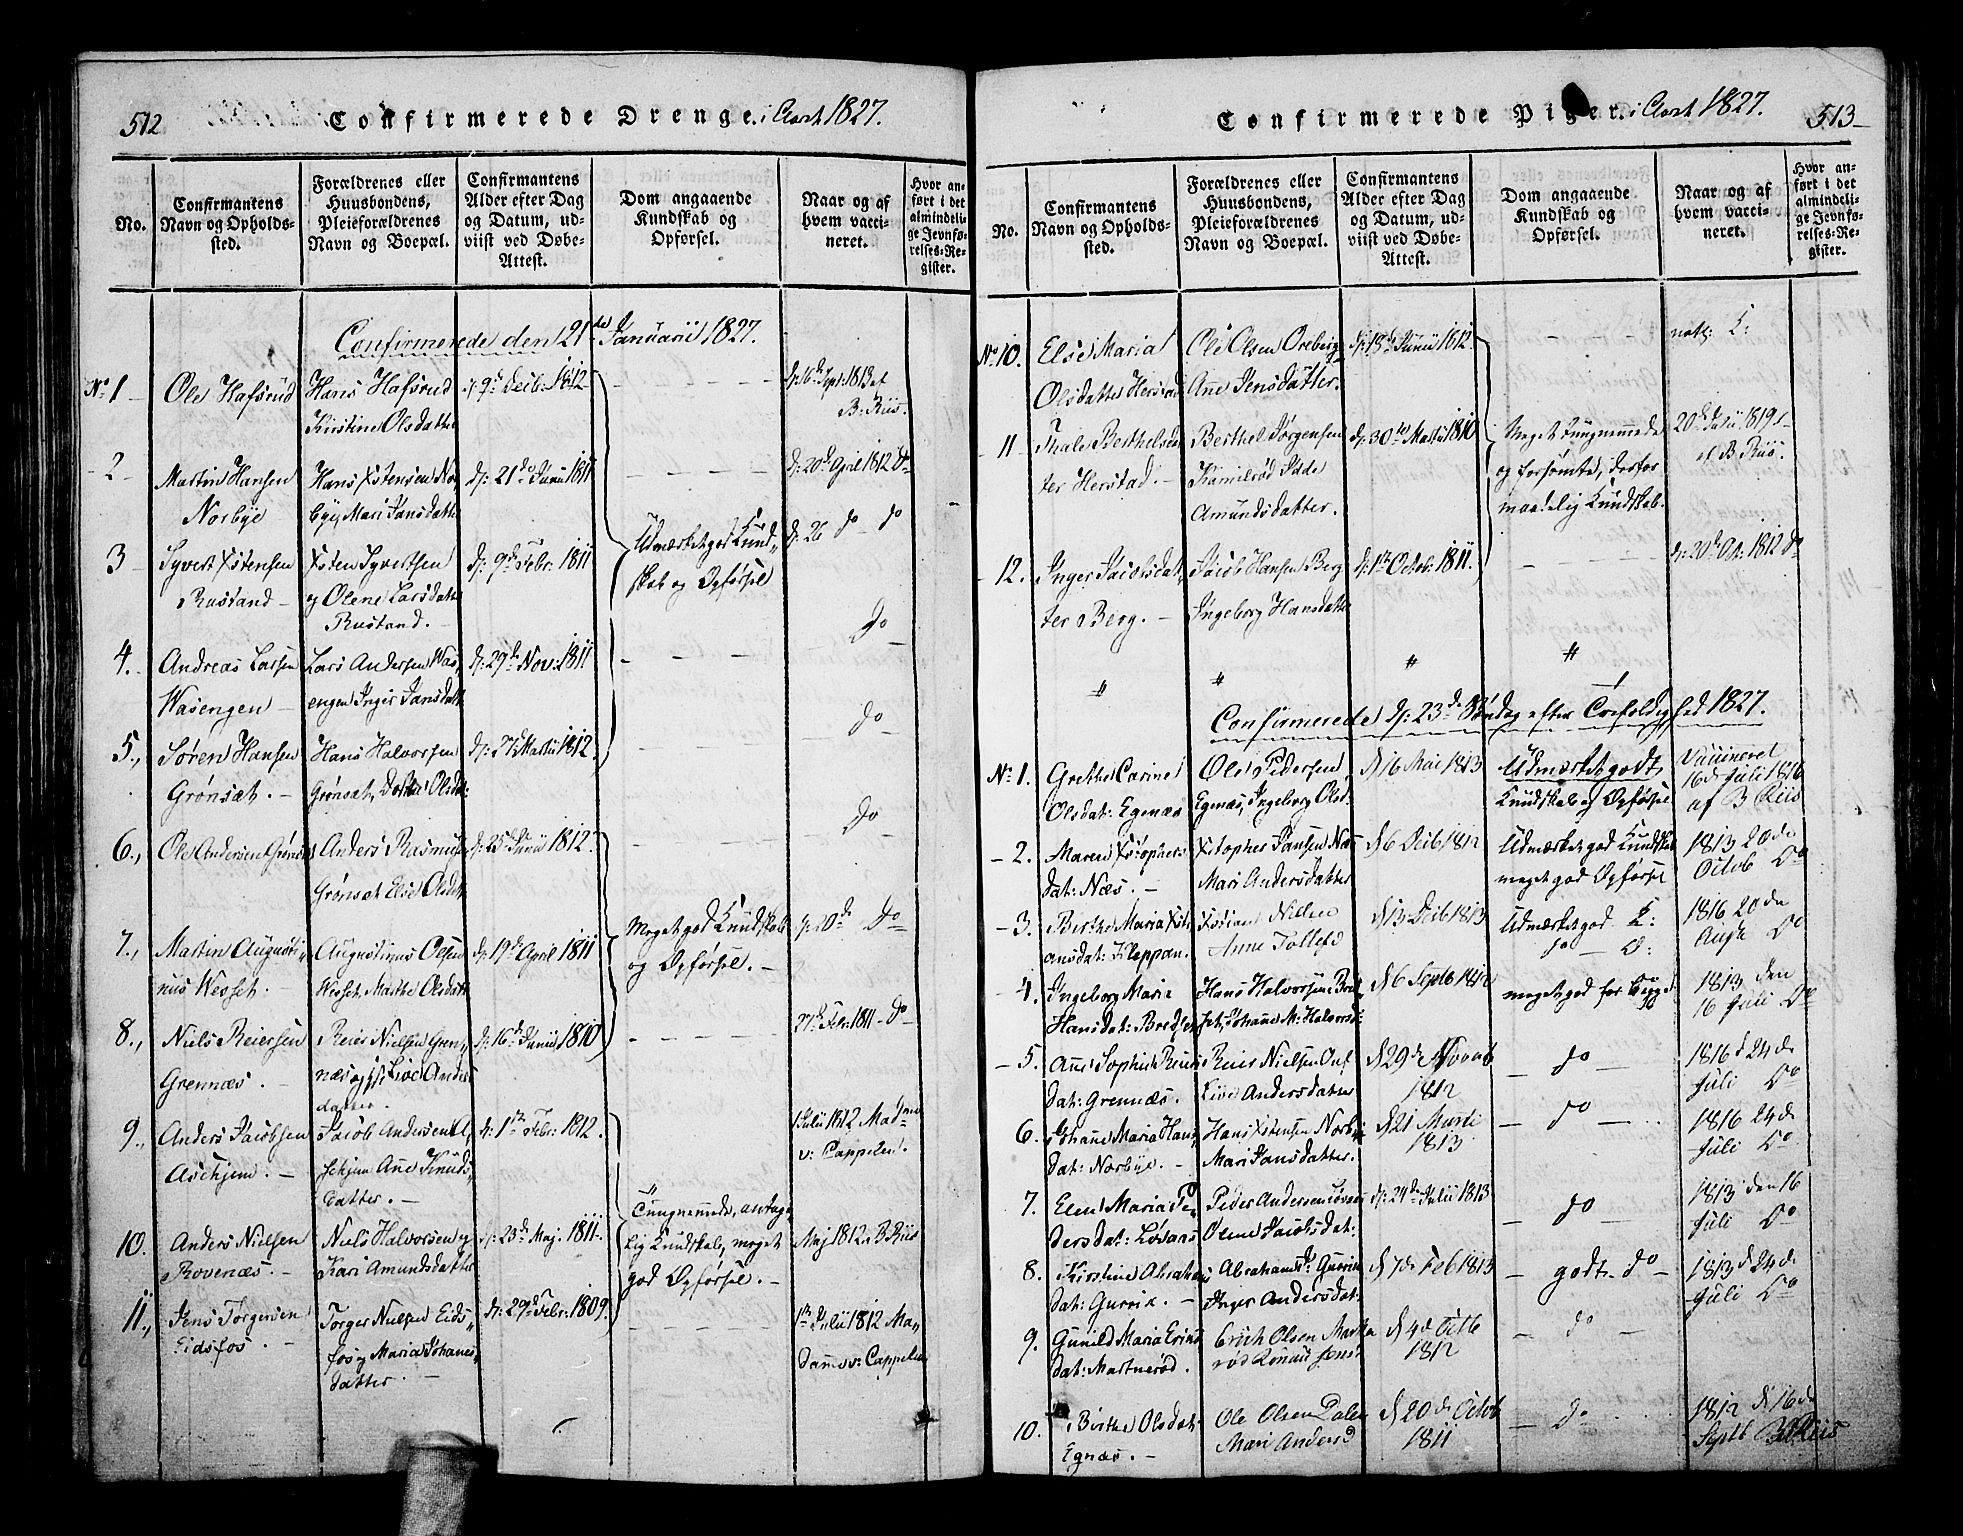 512
Confirmerede Drenge i Aaret 1827.
No.
Confirmantens
Navn og Opholds-
sted.
Forældrenes eller
Huusbondens,
Pleieforældrenes
Navn og Boepæl.
Confirmantens
Alder efter Dag
og Datum, ud-
viist ved Døbe-
Attest.
Dom angaaende
Kundskab og
Opførsel.
Naar og af
hvem vacci-
neret.
Hvor an-
ført i det
almindeli-
ge Jevnfø-
relses-Re-
gister.
Confirmerede den 21de Januarii 1827.
No 1
Ole Hafsrud
Hans Hafsrud
Kirstine Olsdatter
d: 9d Decb: 1812
d: 16d Sept: 1813 af
B: Riis.
2
Martin Hansen
Norbye
Hans Xstensen Nor
bye, Mari Jansdatter
d: 21de Junii 1811
d: 20d April 1812 do
3
Syvert Xstensen
Rustand
Xsten Syvertsen
og Olene Larsdatter
Rustand.
d: 9de Febr: 1811
Udmærket god Kund„
skab og Opførsel
d: 26 do do
4.
Andreas Larsen
Wasengen
Lars Andersen Was„
engen Inger Jansdatt
d: 29de Nov: 1811
do
5.,
Søren Hansen
Grønsæt.
Hans Halvorsen
Grønsæt, Olsd
d: 27d Martii 1812.
do
6.,
Ole Andersen Grøns
Anders Rasmus
Grønsæt Else Olsdat
d: 25d Junii 1812.
do
7.,
Martin Augusti„
nus Wesset.
Augustinus Olsen
Wesset, Marthe Olsdatt
d: 19d April 1811
Meget god Kundskab
og Opførsel.
d: 20de do
8.,
Niels Reiersen
Grennæs.
Reier Nielsen Gren„
næs og Live Anders
datter.
d: 16de Junii 1810
27d Febr: 1811 do
9.,
Anders Jacobsen
Aschjem.
Jacob Andersen A„
schjem Ane Knuds„
datter.
d: 1te Febr: 1812.
1 Julii 1812 Madme
v: Cappelen.
10.
Anders Nielsen
Rovenæs.
Niels Halvorsen og
Kari Amundsdatter
d: 23d Maj. 1811.
Tungnemmede, antage„
lig Kundskab, meget
god Opførsel.
Maj 1812. B. Riis
11.,
Jens Torgersen
Eidsfos.
Torger Nielsen Eids„
fos og Maria Johanes„
datter.
d: 29d Febr: 1809.
1te Julii 1812 Ma„
dame v: Cappelen
513
Confirmerede Piger i Aaret 1827.
No.
Confirmantens
Navn og Opholds-
sted.
Forældrenes eller
Huusbondens,
Pleieforældrenes
Navn og Boepæl.
Confirmantens
Alder efter Dag
og Datum, ud-
viist ved Døbe-
Attest.
Dom angaaende
Kundskab og
Opførsel.
Naar og af
hvem vacci-
neret.
Hvor an-
ført i det
almindeli-
ge Jevnfø-
relses-Re-
gister.
No 10.
Else Maria
Olsdatter Herstad
Ole Olsen Oreberg
Ane Jensdatter.
d: 18d Junii 1812.
natl: K:
11
Thale Berthelsdat
ter Herstad.
Berthel Jørgensen
Kamilrød
Amundsdatter.
d: 30te Martii 1810
Meget tungnemmede
og forsømte, derfor
maadelig Kundskab.
20d Julii 1819
af B. Riis.
12.
Inger Jacobsdat„
ter Berg.
Jacob Hansen Berg
Ingeborg Hansdatter
d: 1te Octob: 1811.
d: 20d Oct: 1812 do
Confirmerede d: 23de Søndag efter Trefoldighed 1827.
No 1.
Grethe Carine
Olsdat: Egenæs
Ole Pedersen
Egenæs, Ingeborg Olsd:
d 16 Mai 1813
Udmærket godt
Kundskab og Opførsel
Vaccineret
16de Juli 1816
af B Riis
2.
Maren Xstophers
dat: Næs.
Xstopher Jansen Næs
Mari Andersdatter
d 6 Decb 1812
Udmærket god Kundskab
meget god Opførsel
1813 20de
Octob Do
3.
Berthe Maria Xsti
ansdat: Kleppan.
Xstian Nielsen
Anne Tollefsd
d 13 Decb 1813
Udmærket god K:
do O:
1816 20de
Augt Do
4.
Ingeborg Marie
Hansdat: Bredset
Hans Halvorsen Bred„
set, Johane M: Halvorsd:
d 6 Septb 1812
meget god for begge
1813 den
16 Juli Do
5.
Ane Sophie Reiers
dat: Grennæs.
Reier Nielsen
Live Andersdatter
d 29de Novemb
1812
do
1816 d 24de
Juli Do
6.
Johane Maria Hans„
dat: Norbye.
Hans Xstensen Norbye
Mari Jansdatter.
d 21 Marti
1813
do
1816 24de
Juli Do
7.
Elen Maria Pe„
dersdat: Løvaas
Peder Andersen Løvaas
Olene Jacobsdat:
d: 24de Julii 1813
do
1813 den 16
Juli Do
8.
Kirstine Abraham
dat: Gurrik.
Abraham Gurrik
Inger Andersdat
d 7de Feb 1813
godt do
1813 d 24de
Juli Do
9.
Gunild Maria Erics
dat: Martnerød.
Erich Olsen Martne
rød
d 4de Octb
1812
do
10.
Birthe Olsdat:
Egnæs.
Ole Olsen Dalen
Mari Andersd
d 20de Octob
1811
do
1812 d 16de
Septb B. Riis